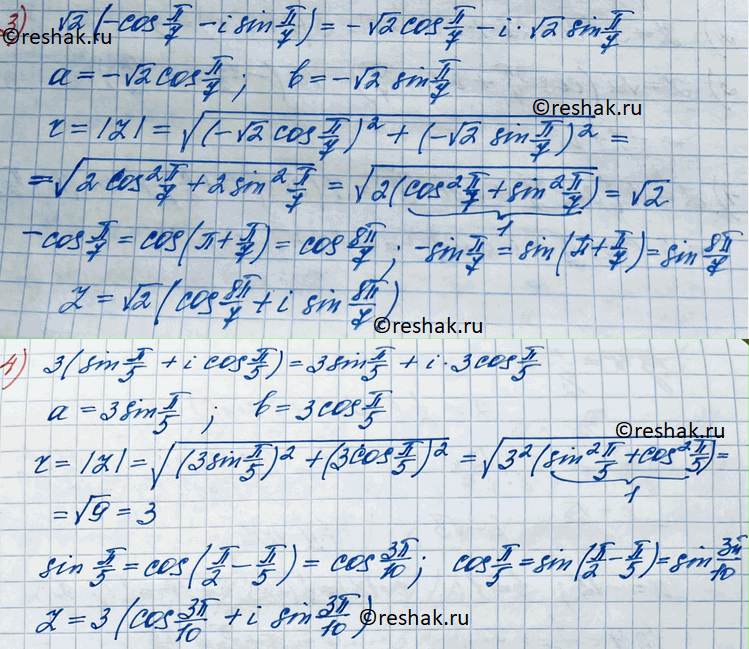 3) √2 (-cos π/7 - i sin π/7) = -√2 cos π/7 - i·√2 sin π/7
©reshak.ru
a = -√2 cos π/7 ; b = -√2 sin π/7
©reshak.ru
r = |z| = √((-√2 cos π/7)² + (-√2 sin π/7)²) =
= √(2 cos² π/7 + 2 sin² π/7) = √(2(cos² π/7 + sin² π/7)) = √2
1
-cos π/7 = cos(π + π/7) = cos 8π/7 ; -sin π/7 = sin(π + π/7) = sin 8π/7
z = √2 (cos 8π/7 + i sin 8π/7)
©reshak.ru
4) 3(sin π/5 + i cos π/5) = 3 sin π/5 + i·3 cos π/5
a = 3 sin π/5 ; b = 3 cos π/5
©reshak.ru
r = |z| = √((3 sin π/5)² + (3 cos π/5)²) = √(3²(sin² π/5 + cos² π/5)) =
1
= √9 = 3
sin π/5 = cos(π/2 - π/5) = cos 3π/10 ; cos π/5 = sin(π/2 - π/5) = sin 3π/10
z = 3 (cos 3π/10 + i sin 3π/10)
©reshak.ru